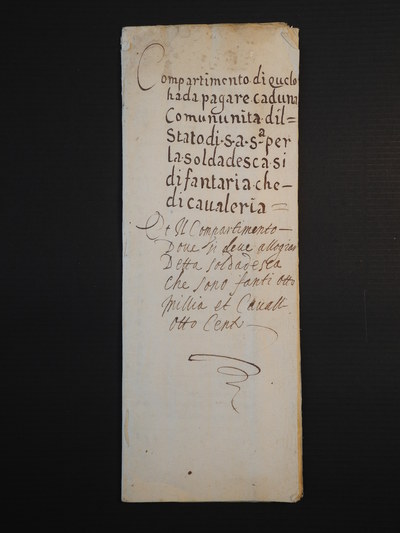 Compartimento di quelo
ha da pagare caduna
Comununita dil=
Stato di S·A·S·a per
la soldadesca si
di fantaria che=
di caualeria =
Et Il Compartimento—
Doue si deue allogiar
Detta soldadesca
che sono fanti otto
millia et Cauall
otto Cento